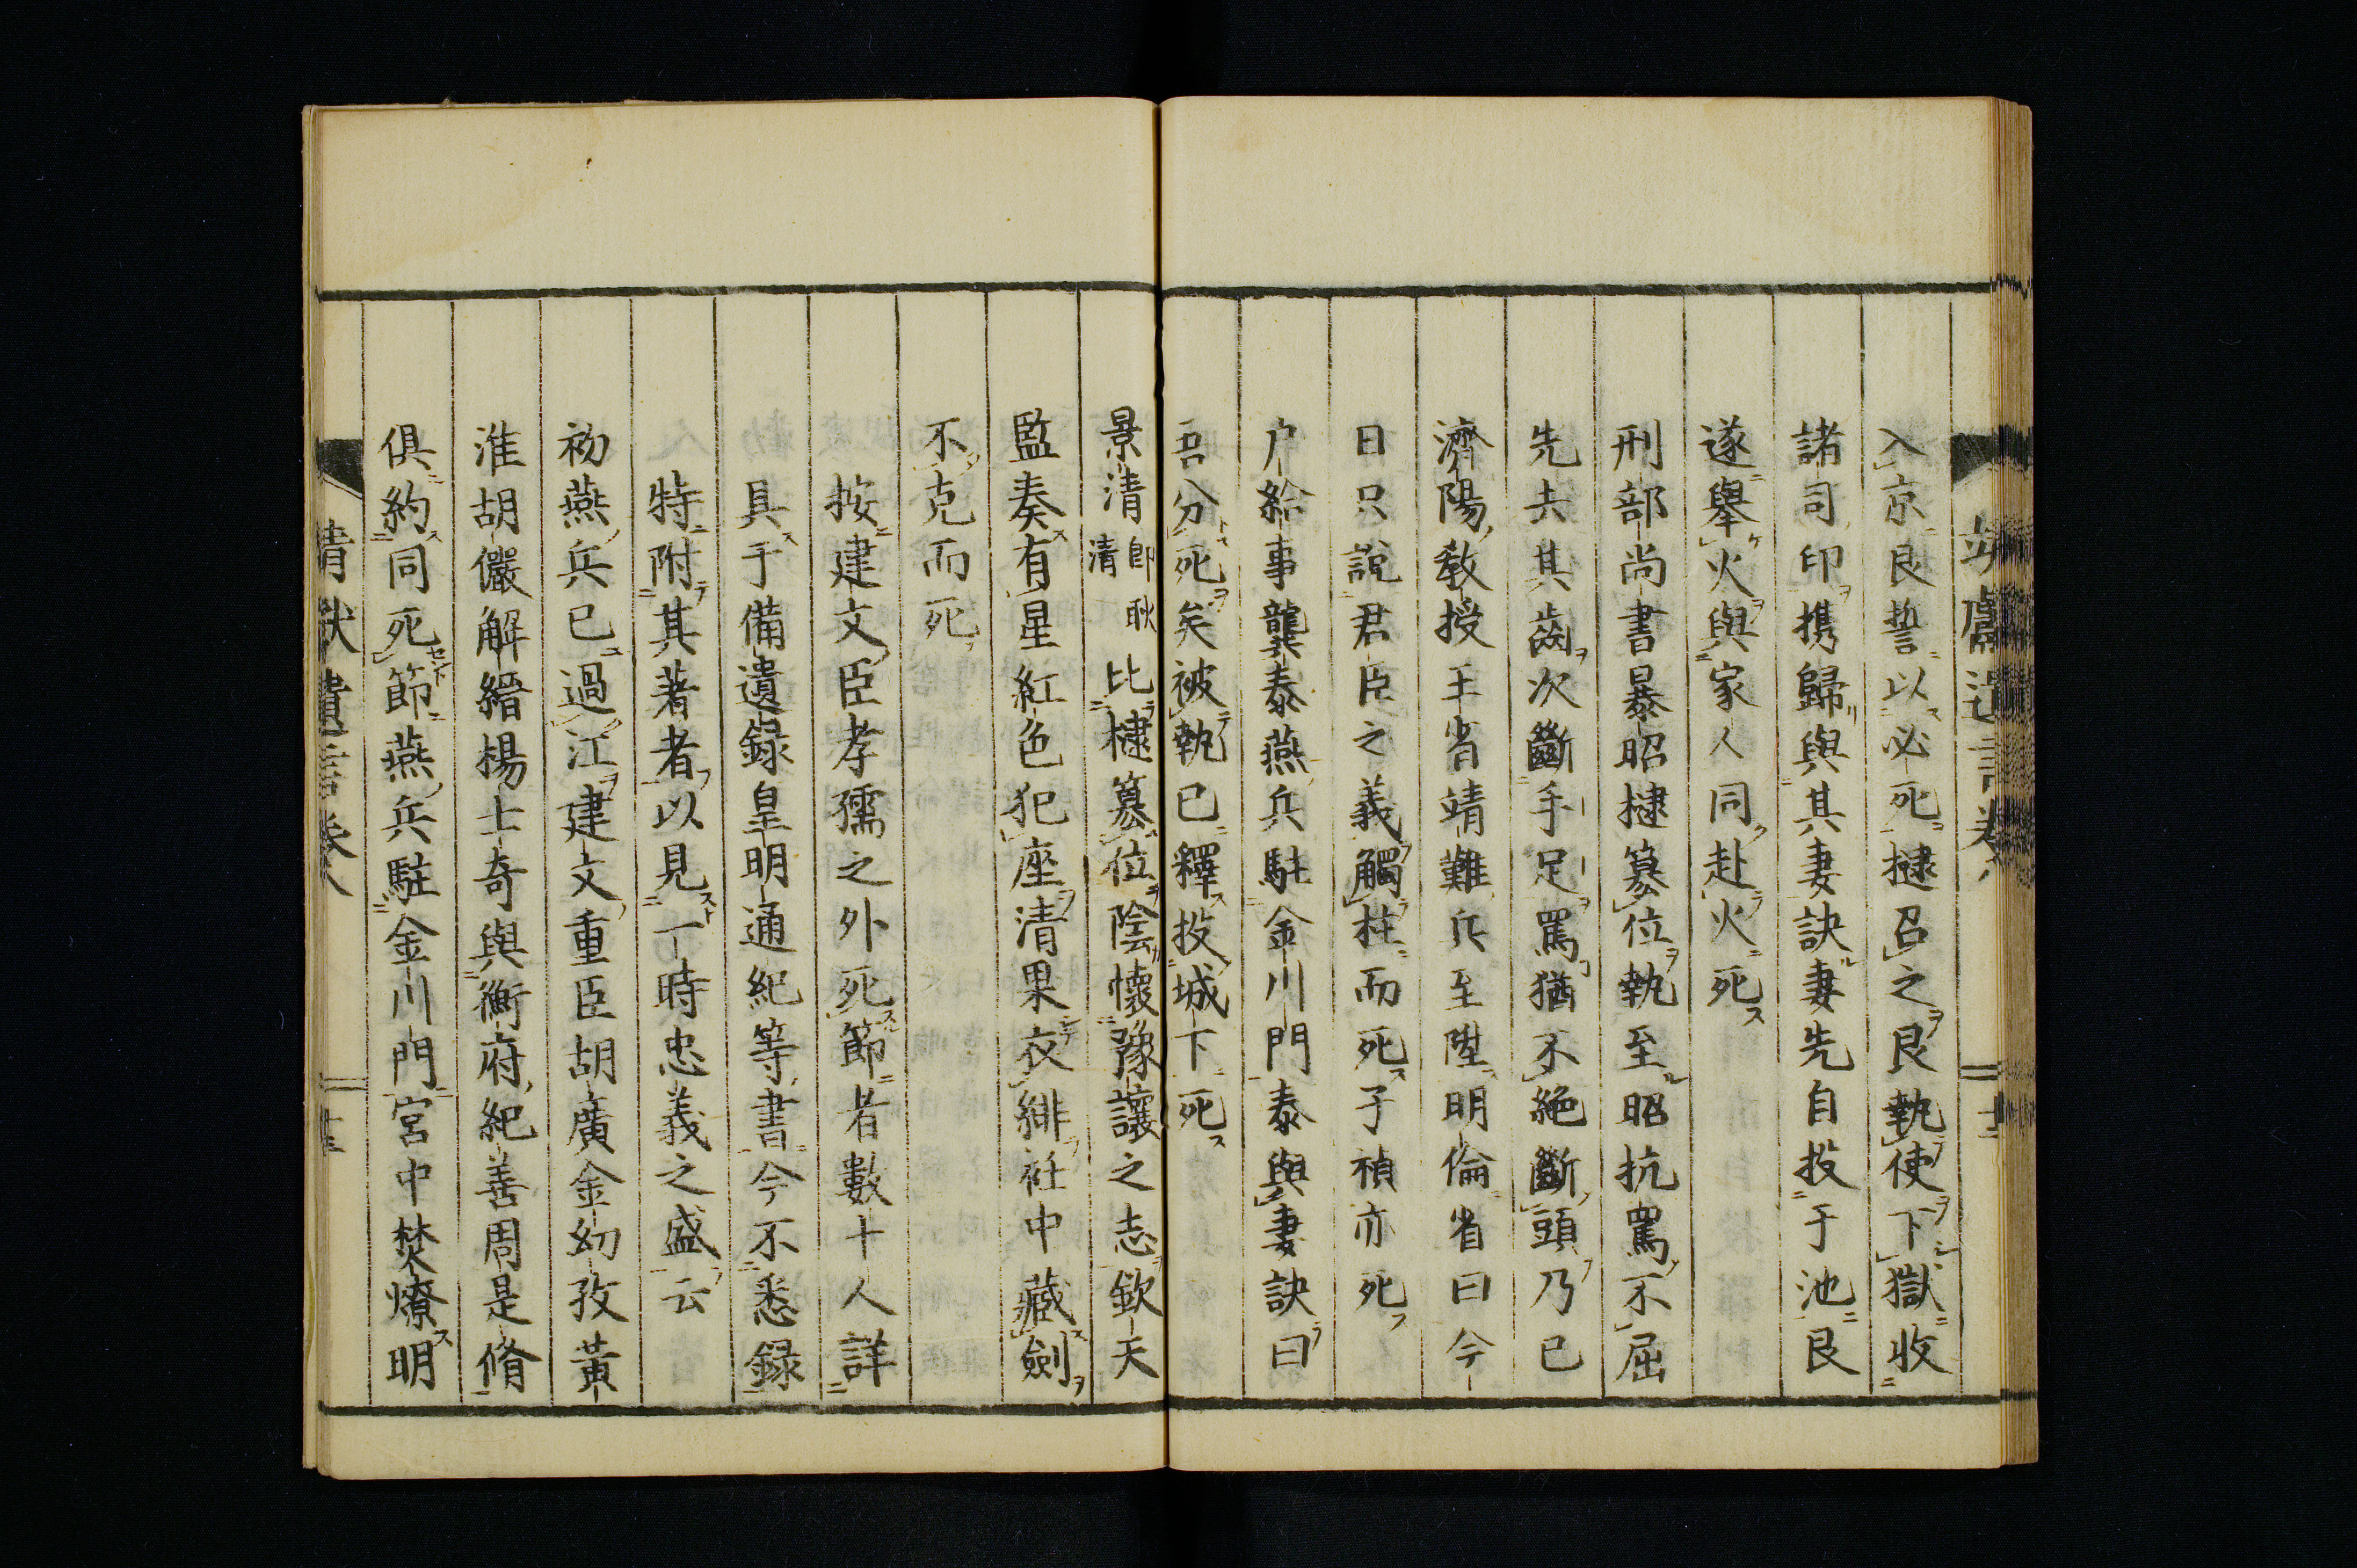 入京艮誓以必死揵召之艮執使下獄收
諸司印携歸與其妻訣妻先自投于池艮
遂舉火與家人同赴火死
刑部尚書暴昭揵簒位執至昭抗罵不屈
先去其齒次斷手足罵猶不絕斷頭乃已
濟陽教授王省靖難兵至陞明倫省曰今
日只說君臣之義觸柱而死子禎亦死
户給事龔泰燕兵駐金川門泰與妻訣曰
吾分死矣被執已釋投城下死
景清即耿清比棣簒位陰懷豫讓之志欽天
監奏有星紅色犯座清果衣緋衽中藏劍
不克而死
按建文臣孝孺之外死節者數十人詳
具于備遺録皇明通紀等書今不悉録
特附其著者以見一時忠義之盛云
初燕兵已過江建文重臣胡廣金幼孜黃
淮胡儼解縉楊士奇與衡府紀善周是脩
俱約同死節燕兵駐金川門宮中焚燎明